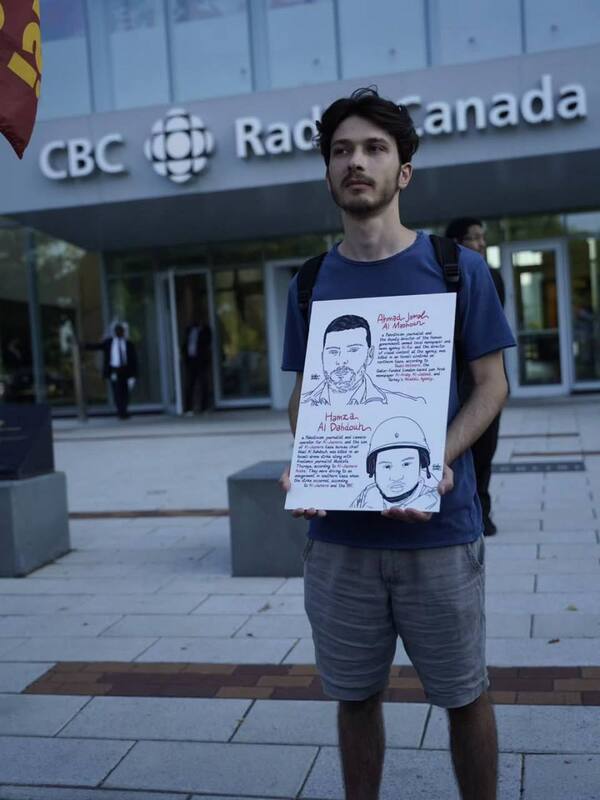 CBC Radi Canada
Ahmad Jamal
Al Madhoun
a Palestinian journalist and
the deputy director of the Hamas
government owned local newspaper and
news agency Al-Rai and the director
of visual content at the agency, was
killed in an Israeli airstrike on
northern Gaza, according to
the
Qatar-funded London-based pan Arab
newspaper Al-Araby Al-Jadeed, and
Turkey's Anadolu Agency.
Hamza
Al Dahdouh
a Palestinian journalist and camera
operator for Al-Jazeera and the son
of Al-Jazeera Gaza bureau chief
Wael Al Dahdouh, was killed in an
Israeli drone strike along with
freelance journalist Mustafa
Thuraya, according to Al-Jazeera
They were driving to an
assignment in southern Gaza when
the strike occurred, according
to Al-Jazeera and the BBC.